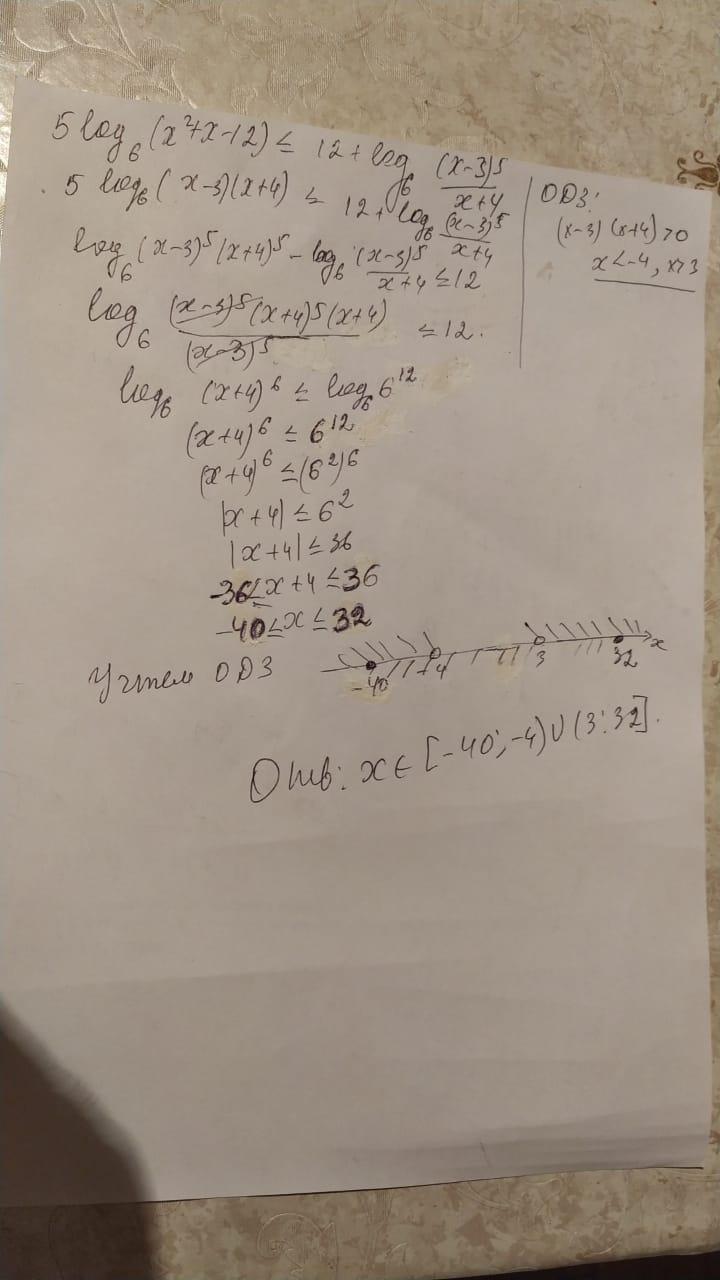 5 log₆ (x²+x-12) ≤ 12 + log₆ (x-3)⁵/(x+4)
5 log₆ (x-3)(x+4) ≤ 12 + log₆ (x-3)⁵/(x+4)
log₆ (x-3)⁵(x+4)⁵ - log₆ (x-3)⁵/(x+4) ≤ 12
log₆ (x-3)⁵(x+4)⁵(x+4)/(x-3)⁵ ≤ 12.
log₆ (x+4)⁶ ≤ log₆ 6¹²
(x+4)⁶ ≤ 6¹²
(x+4)⁶ ≤ (6²)⁶
|x+4| ≤ 6²
|x+4| ≤ 36
-36 ≤ x+4 ≤ 36
-40 ≤ x ≤ 32
Учтем ОДЗ
-40 -4 3 32 x
Отв: x ∈ [-40; -4) ∪ (3; 32].
ОДЗ:
(x-3)(x+4)>0
x<-4, x>3